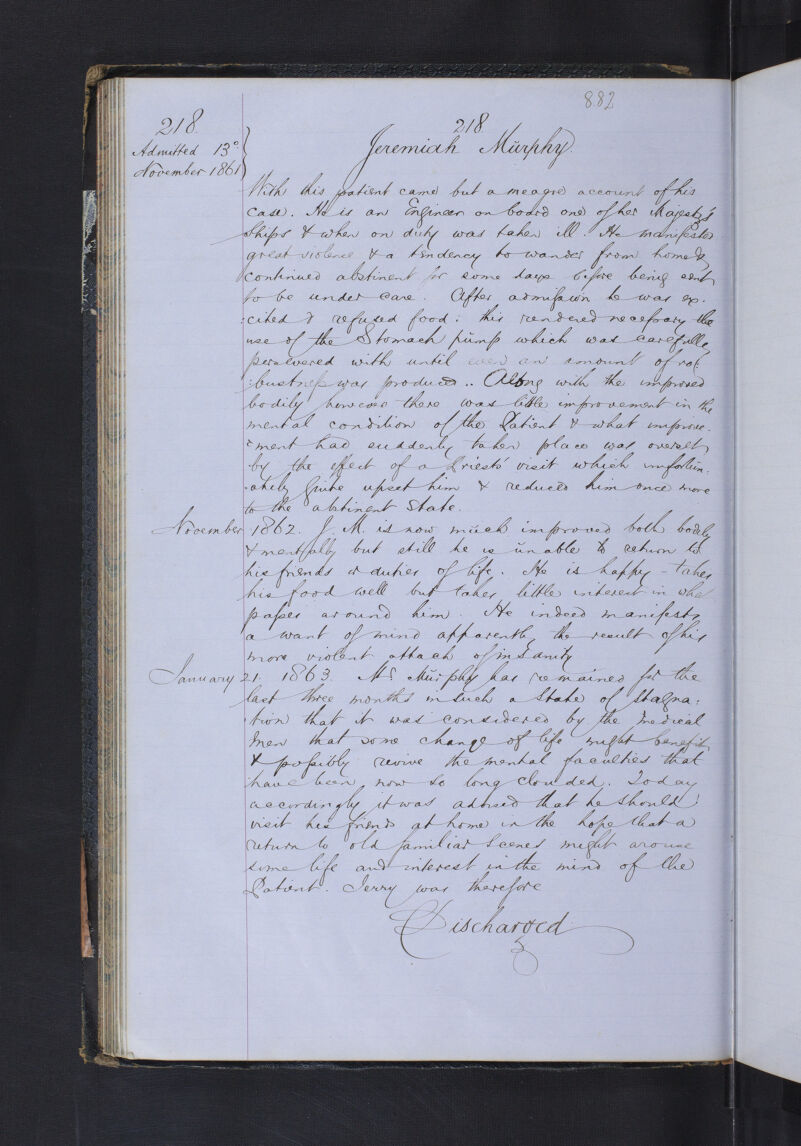 882
218.
218
Admitted 13th
November 1861
Jeremiah Murphy.
With this patient came but a meagre account of his
case. He is an Engineer on board one of her Majesty's
Ships & when on duty was taken ill. He manifested
great violence & a tendency to wander from home &
continued abstinent for some days before being sent
to be under care. After admission he was ex:
:cited & refused food: this rendered necessary the
use of the Stomach pump which was carefully
persevered with until even an amount of ro:
:bustness was produced.. Along with the improved
bodily however there was little improvement in the
mental condition of the Patient & what improve:
:ment had suddenly taken place was overset
by the effect of a Priests visit which unfortun:
:ately quite upset him & reduced him once more
to the abstinent state.
November 1862. J. M. is now much improved both bodily
& mentally but still he is unable to return to
his friends or duties of life. He is happy – takes
his food well but takes little interest in what
passes around him. He indeed manifests
a want of mind apparently the result of his
more violent attack of insanity
January 21. 1863. Mr Murphy has remained for the
last three months in such a state of stagna:
:tion that it was considered by the medical
men that some change of life might benefit
& possibly revive the mental faculties that
have been now so long clouded. Today
accordingly it was advised that he should
visit his friends at home in the hope that a
return to old familiar scenes might arouse
some life and interest in the mind of the
Patient. Jerry was therefore
Discharged